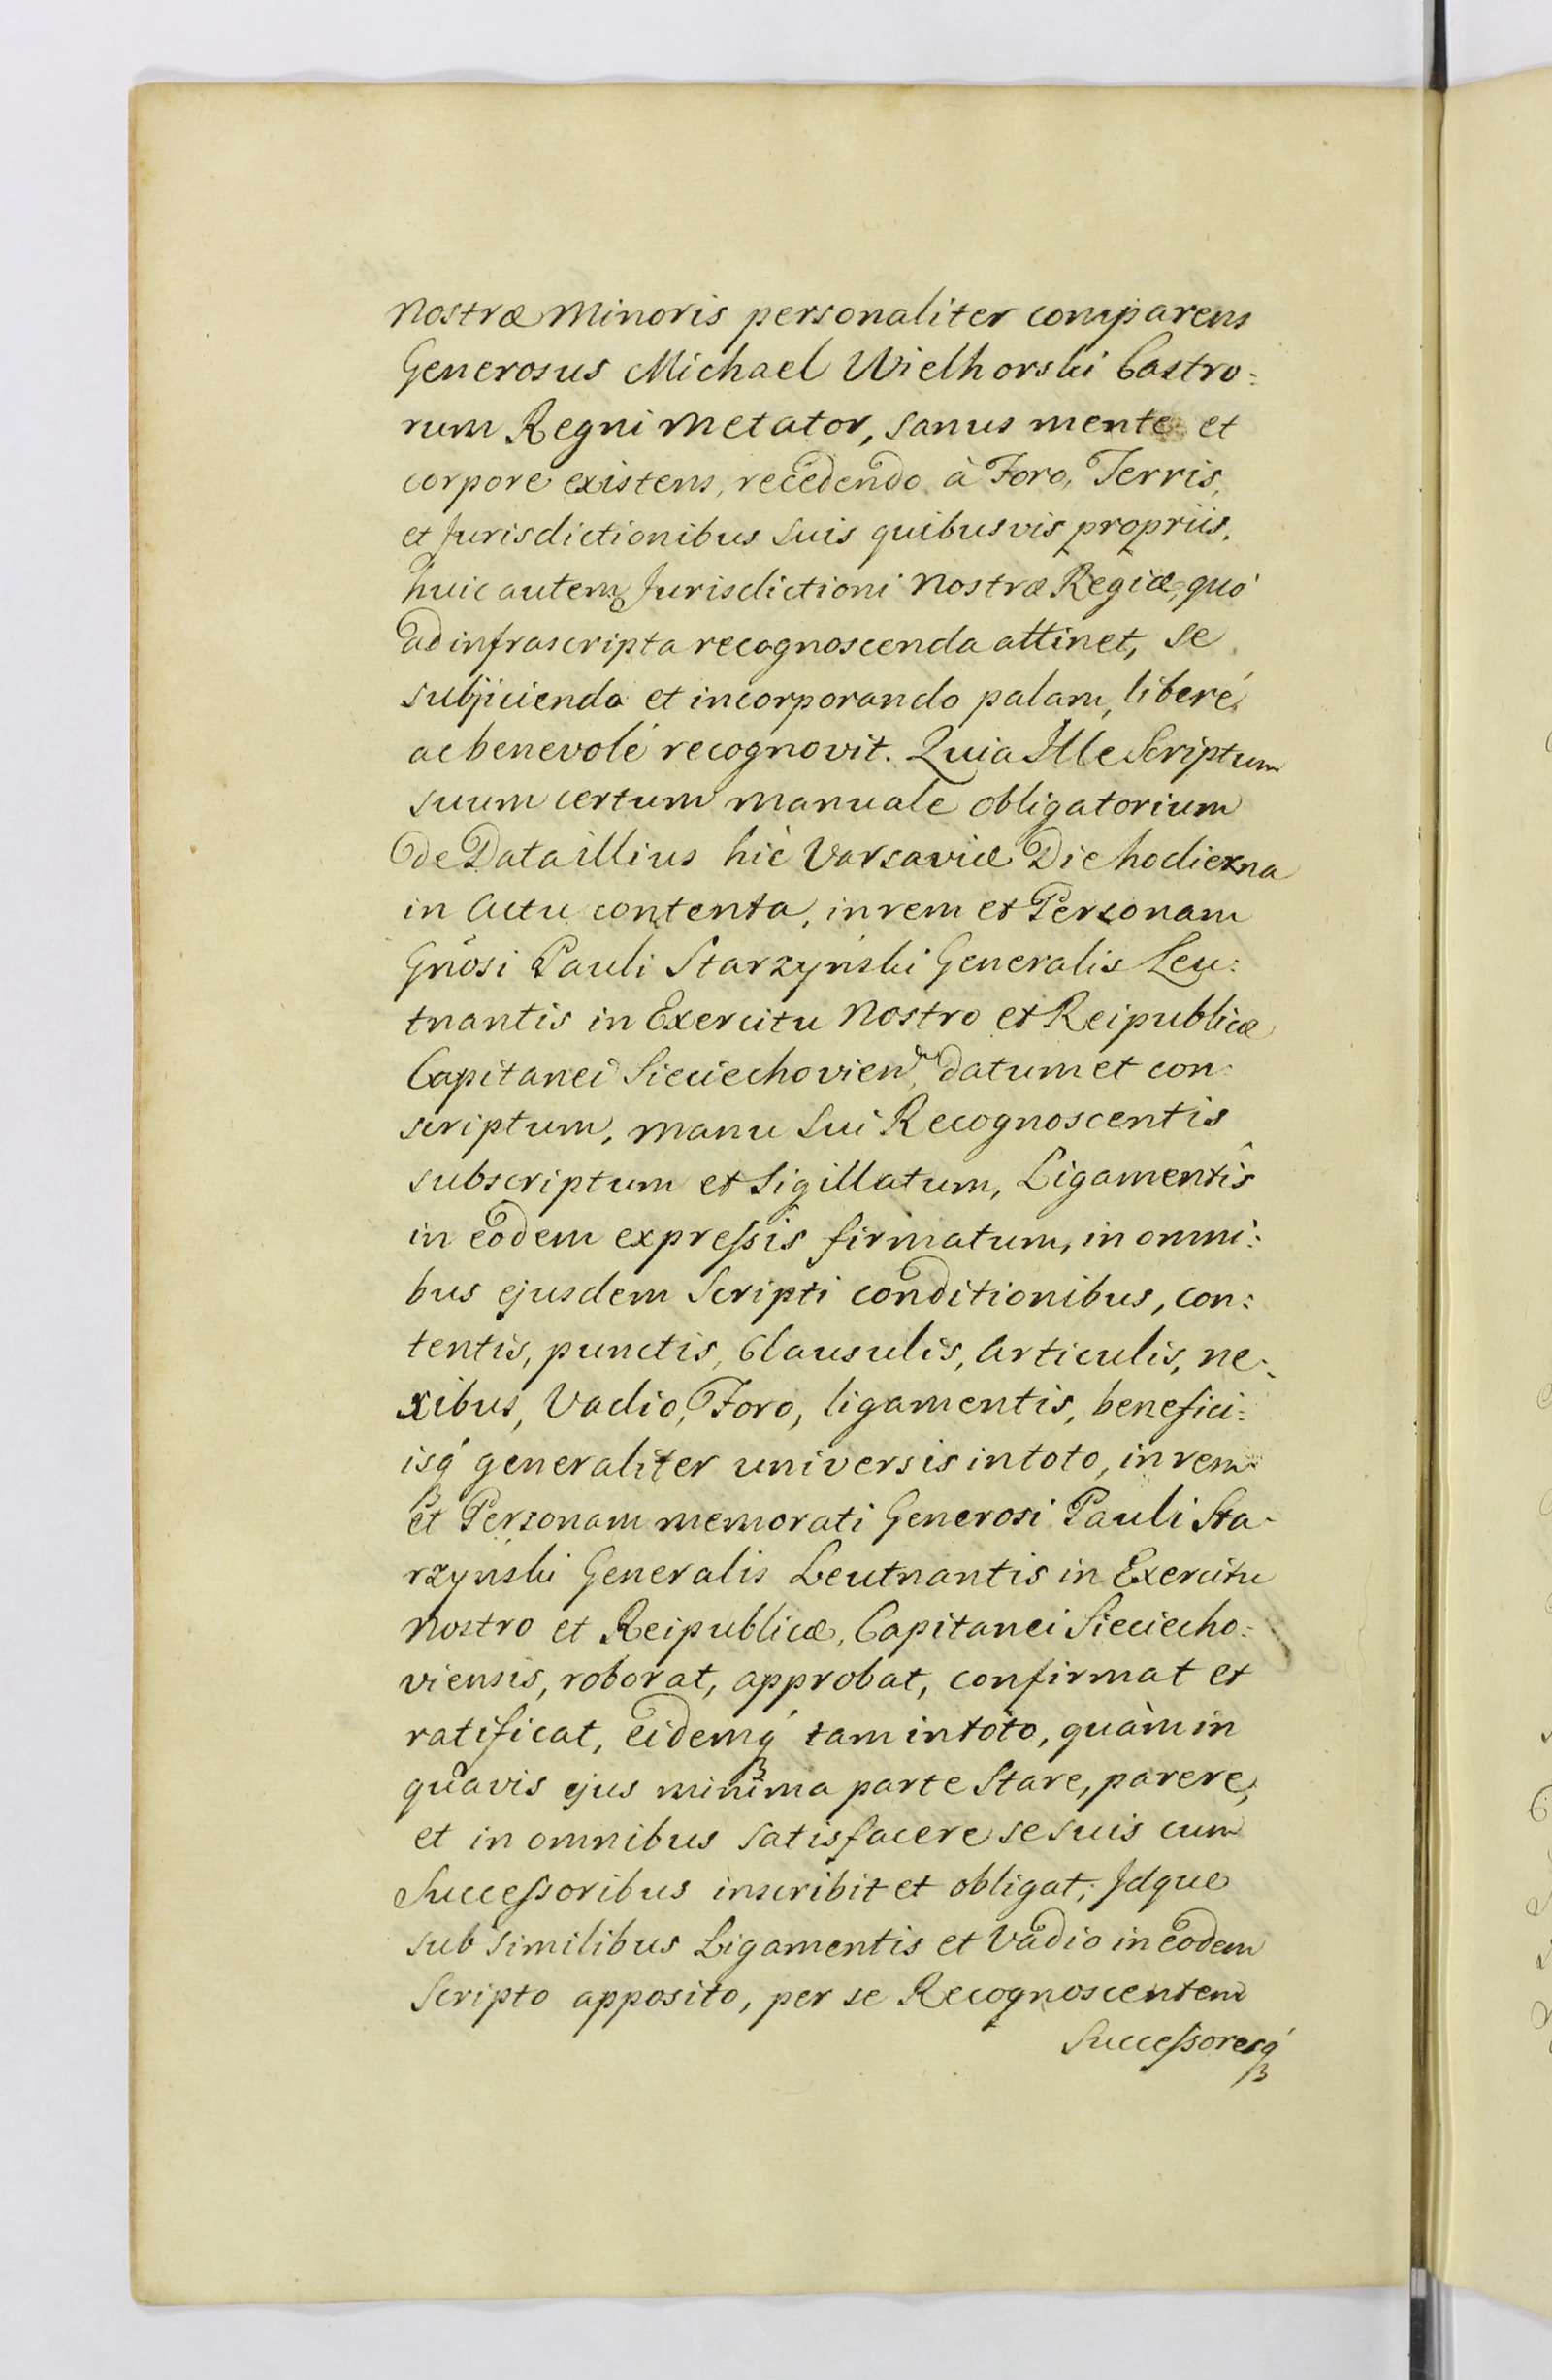 Nostræ Minoris personaliter comparens
Generosus Michael Wielhorski Castro:
rum Regni Metator, sanus mente et
corpore existens, recedendo à Foro, Terris,
et Jurisdictionibus suis quibusvis propriis.
huic autem Jurisdictioni Nostræ Regiæ, quò
ad infrascripta recognoscenda attinet, se
subjiciendo et incorporando palam, liberé,
ac benevolé recognovit. Quia Ille Scriptum
suum certum manuale obligatorium
de Data illius hìc Varsaviæ Die hodierna
in Actu contenta, in rem et Personam
Gnosi Pauli Starzyński Generalis Leu:
tnantis in Exercitu Nostro et Reipublicæ
Capitanei Sieciechovien, datum et con:
scriptum, manu Sui Recognoscentis
subscriptum et Sigillatum, Ligamentis
in eodem expreſsis firmatum, in omni:
bus ejusdem Scripti conditionibus, con:
tentis, punctis, Clausulis, Articulis, ne:
xibus, Vadio, Foro, ligamentis, benefici:
isq́ generaliter universis in toto, in rem
et Personam memorati Generosi Pauli Sta-
rzyński Generalis Leutnantis in Exercitu
Nostro et Reipublicæ, Capitanei Sieciecho:
viensis, roborat, approbat, confirmat et
ratificat, eidemq́ tam in toto, quàm in
quavis ejus minima parte Stare, parere,
et in omnibus satisfacere se suis cum
Succeſsoribus inscribit et obligat; Idque
sub similibus Ligamentis et Vadio in eodem
Scripto apposito, per se Recognoscentem
Succeſsoresq́